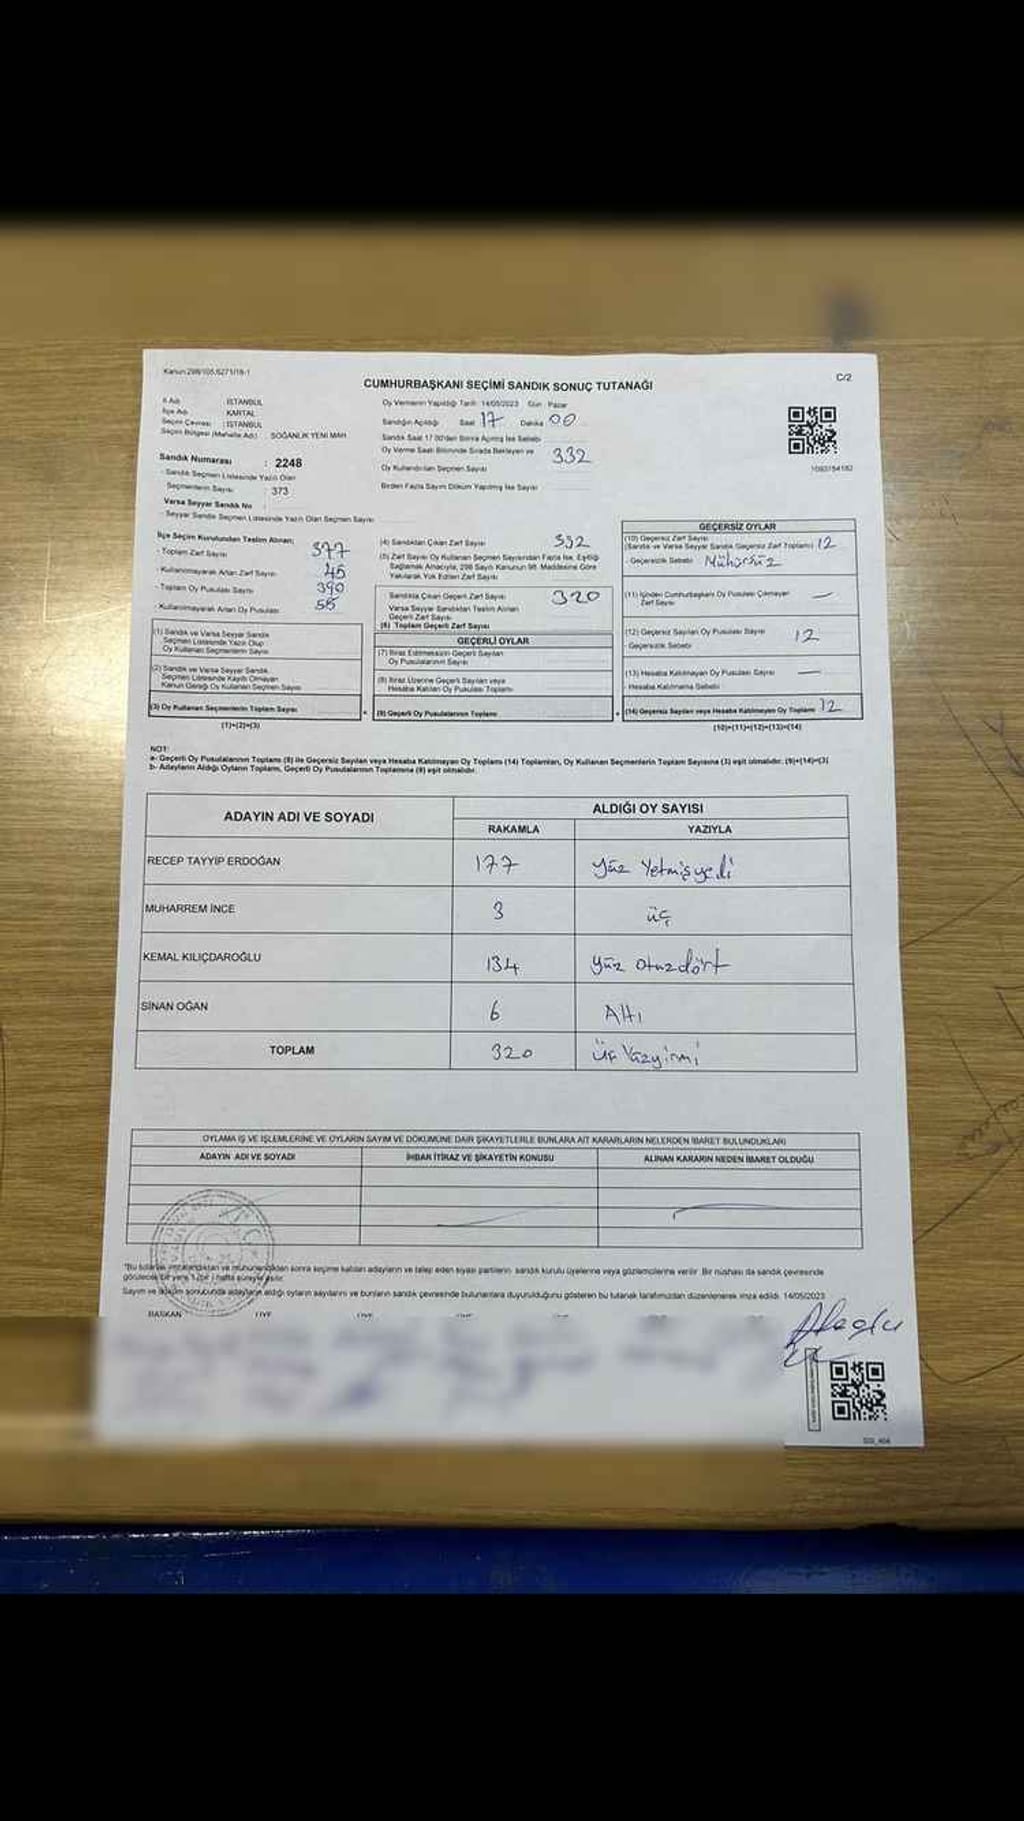 Kanun 298/105,6271/18-1
C/2
CUMHURBAŞKANI SEÇİMİ SANDIK SONUÇ TUTANAĞI
İl Adı : İSTANBUL
İlçe Adı : KARTAL
Seçim Çevresi : İSTANBUL
Seçim Bölgesi (Mahalle Adı) : SOĞANLIK YENİ MAH
Sandık Numarası : 2248
- Sandık Seçmen Listesinde Yazılı Olan
Seçmenlerin Sayısı : 373
Varsa Seyyar Sandık No
- Seyyar Sandık Seçmen Listesinde Yazılı Olan Seçmen Sayısı
Oy Vermenin Yapıldığı Tarih: 14/05/2023 Gün : Pazar
Sandığın Açıldığı Saat 17 Dakika 00
Sandık Saat 17.00'den Sonra Açılmış İse Sebebi
Oy Verme Saati Bitiminde Sırada Bekleyen ve
Oy Kullandırılan Seçmen Sayısı 332
Birden Fazla Sayım Döküm Yapılmış İse Sayısı
1093154182
İlçe Seçim Kurulundan Teslim Alınan;
- Toplam Zarf Sayısı 377
- Kullanılmayarak Artan Zarf Sayısı 45
- Toplam Oy Pusulası Sayısı 390
- Kullanılmayarak Artan Oy Pusulası 58
(1) Sandık ve Varsa Seyyar Sandık
Seçmen Listesinde Yazılı Olup
Oy Kullanan Seçmenlerin Sayısı
(2) Sandık ve Varsa Seyyar Sandık
Seçmen Listesinde Kayıtlı Olmayan
Kanun Gereği Oy Kullanan Seçmen Sayısı
(3) Oy Kullanan Seçmenlerin Toplam Sayısı
(1)+(2)=(3)
(4) Sandıktan Çıkan Zarf Sayısı 332
(5) Zarf Sayısı Oy Kullanan Seçmen Sayısından Fazla İse, Eşitliği
Sağlamak Amacıyla, 298 Sayılı Kanunun 98. Maddesine Göre
Yakılarak Yok Edilen Zarf Sayısı
Sandıkta Çıkan Geçerli Zarf Sayısı 320
Varsa Seyyar Sandıktan Teslim Alınan
Geçerli Zarf Sayısı
(6) Toplam Geçerli Zarf Sayısı
GEÇERLİ OYLAR
(7) İtiraz Edilmeksizin Geçerli Sayılan
Oy Pusulalarının Sayısı
(8) İtiraz Üzerine Geçerli Sayılan veya
Hesaba Katılan Oy Pusulası Toplamı
(9) Geçerli Oy Pusulalarının Toplamı
GEÇERSİZ OYLAR
(10) Geçersiz Zarf Sayısı
(Sandık ve Varsa Seyyar Sandık Geçersiz Zarf Toplamı) 12
- Geçersizlik Sebebi Mühürsüz
(11) İçinden Cumhurbaşkanı Oy Pusulası Çıkmayan
Zarf Sayısı —
(12) Geçersiz Sayılan Oy Pusulası Sayısı 12
- Geçersizlik Sebebi
(13) Hesaba Katılmayan Oy Pusulası Sayısı —
- Hesaba Katılmama Sebebi
(14) Geçersiz Sayılan veya Hesaba Katılmayan Oy Toplamı 12
(10)+(11)+(12)+(13)=(14)
NOT:
a- Geçerli Oy Pusulalarının Toplamı (9) ile Geçersiz Sayılan veya Hesaba Katılmayan Oy Toplamı (14) Toplamları, Oy Kullanan Seçmenlerin Toplam Sayısına (3) eşit olmalıdır. (9)+(14)=(3)
b- Adayların Aldığı Oyların Toplamı, Geçerli Oy Pusulalarının Toplamına (9) eşit olmalıdır.
ADAYIN ADI VE SOYADI ALDIĞI OY SAYISI
RAKAMLA YAZIYLA
RECEP TAYYİP ERDOĞAN 177 Yüz Yetmişyedi
MUHARREM İNCE 3 üç
KEMAL KILIÇDAROĞLU 134 Yüz otuzdört
SİNAN OĞAN 6 Altı
TOPLAM 320 Üç Yüzyirmi
OYLAMA İŞ VE İŞLEMLERİNE VE OYLARIN SAYIM VE DÖKÜMÜNE DAİR ŞİKAYETLERLE BUNLARA AİT KARARLARIN NELERDEN İBARET BULUNDUKLARI
ADAYIN ADI VE SOYADI İHBAR İTİRAZ VE ŞİKAYETİN KONUSU ALINAN KARARIN NEDEN İBARET OLDUĞU
*Bu tutanak imzalandıktan ve mühürlendikten sonra seçime katılan adayların ve talep eden siyasi partilerin sandık kurulu üyelerine veya gözlemcilerine verilir. Bir nüshası da sandık çevresinde
görülecek bir yere 1 (bir) hafta süreyle asılır.
Sayım ve döküm sonucunda adayların aldığı oyların sayılarını ve bunların sandık çevresinde bulunanlara duyurulduğunu gösteren bu tutanak tarafımızdan düzenlenerek imza edildi. 14/05/2023
BAŞKAN ÜYE ÜYE ÜYE